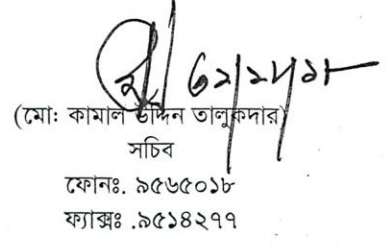 (মো: কামাল উদ্দিন তালুকদার)
সচিব
ফোনঃ. ৯৫৬৫০১৮
ফ্যাক্সঃ .৯৫১৪২৭৭